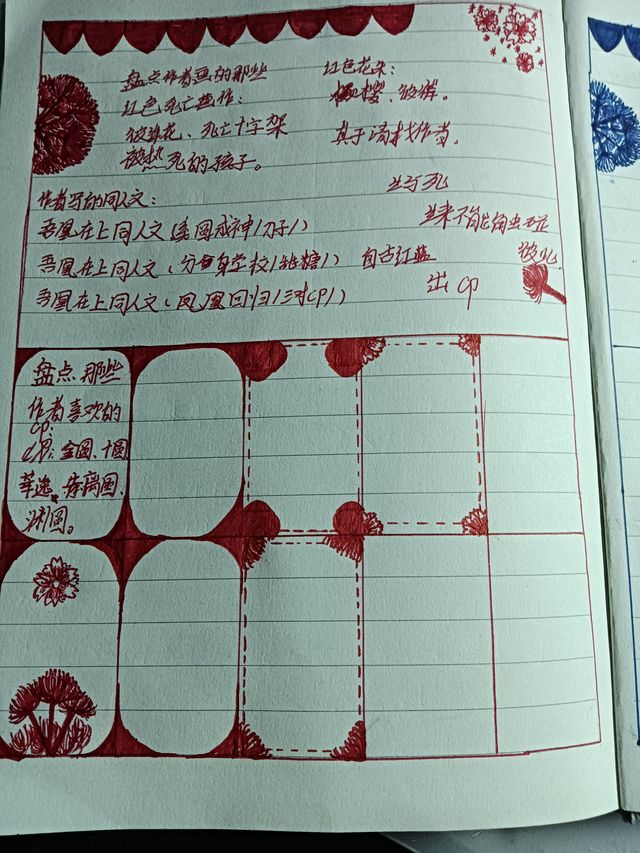 盘点作者画的那些
红色死亡画作：
彼岸花、死亡十字架
被热死的孩子。
红色花朵：
樱、彼岸。
真于商找作者。
生与死
作者写的同人文：
吾凰在上同人文（美图成神/刀子/）
生来不能触碰
吾凰在上同人文（分身学校/纯糖/）
自古红蓝
彼此
吾凰在上同人文（凤凰回归/三对CP/）
出CP
盘点那些
作者喜欢的
CP：
金圆、十圆
莘逸、离圆、
圆。